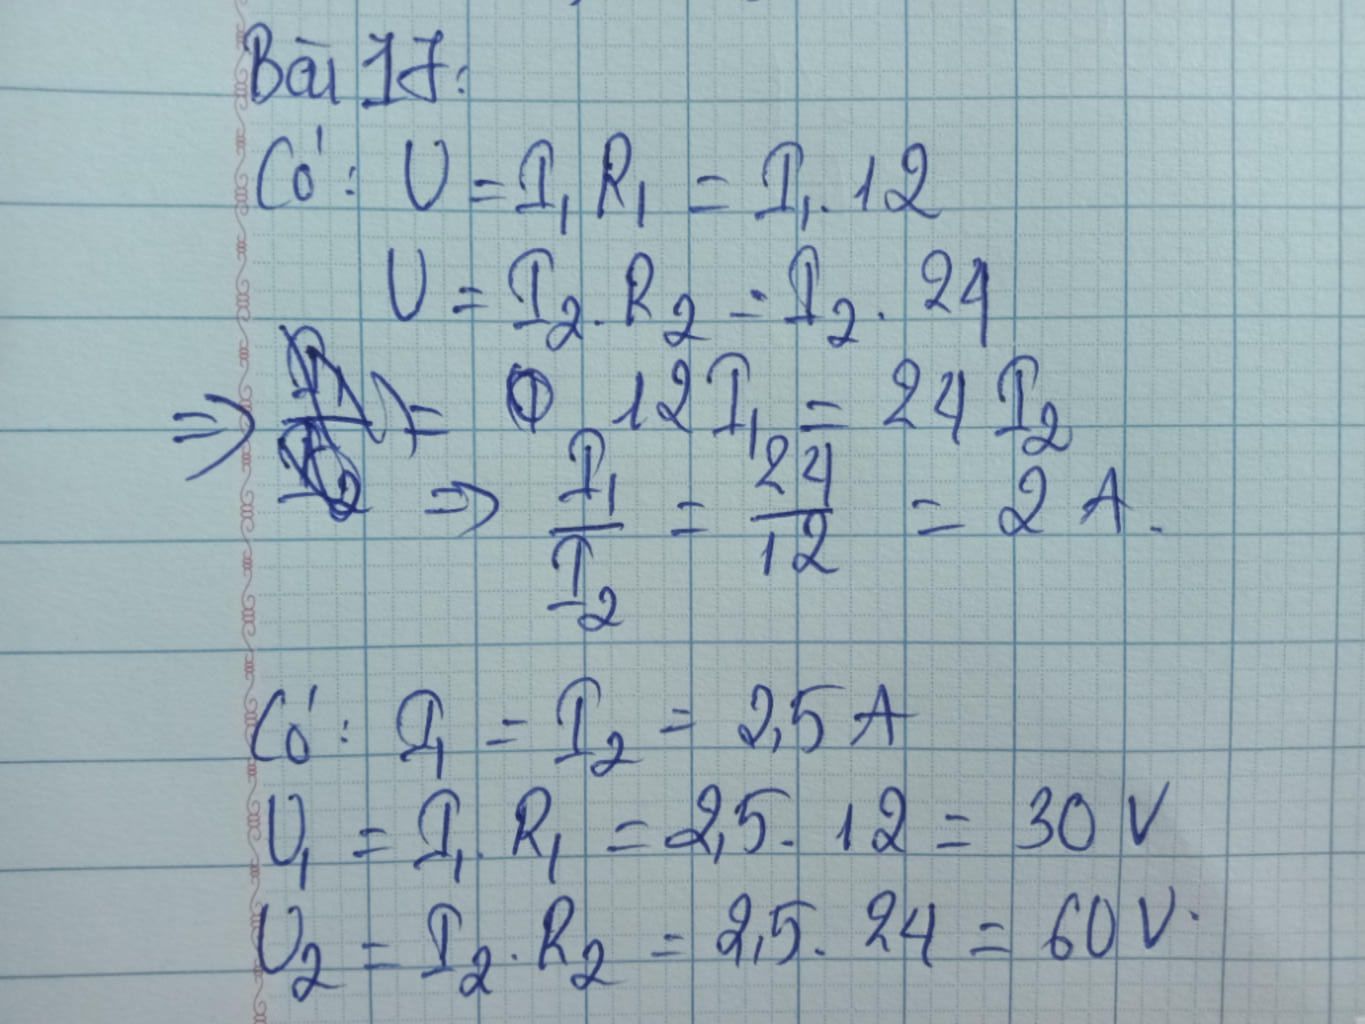 Bài 17:
Có: U = I₁ R₁ = I₁. 12
U = I₂. R₂ = I₂. 24
=> 12I₁ = 24 I₂
=> I₁/I₂ = 24/12 = 2 A.
Có: I₁ = I₂ = 2,5 A
U₁ = I₁. R₁ = 2,5. 12 = 30 V
U₂ = I₂. R₂ = 2,5. 24 = 60 V.